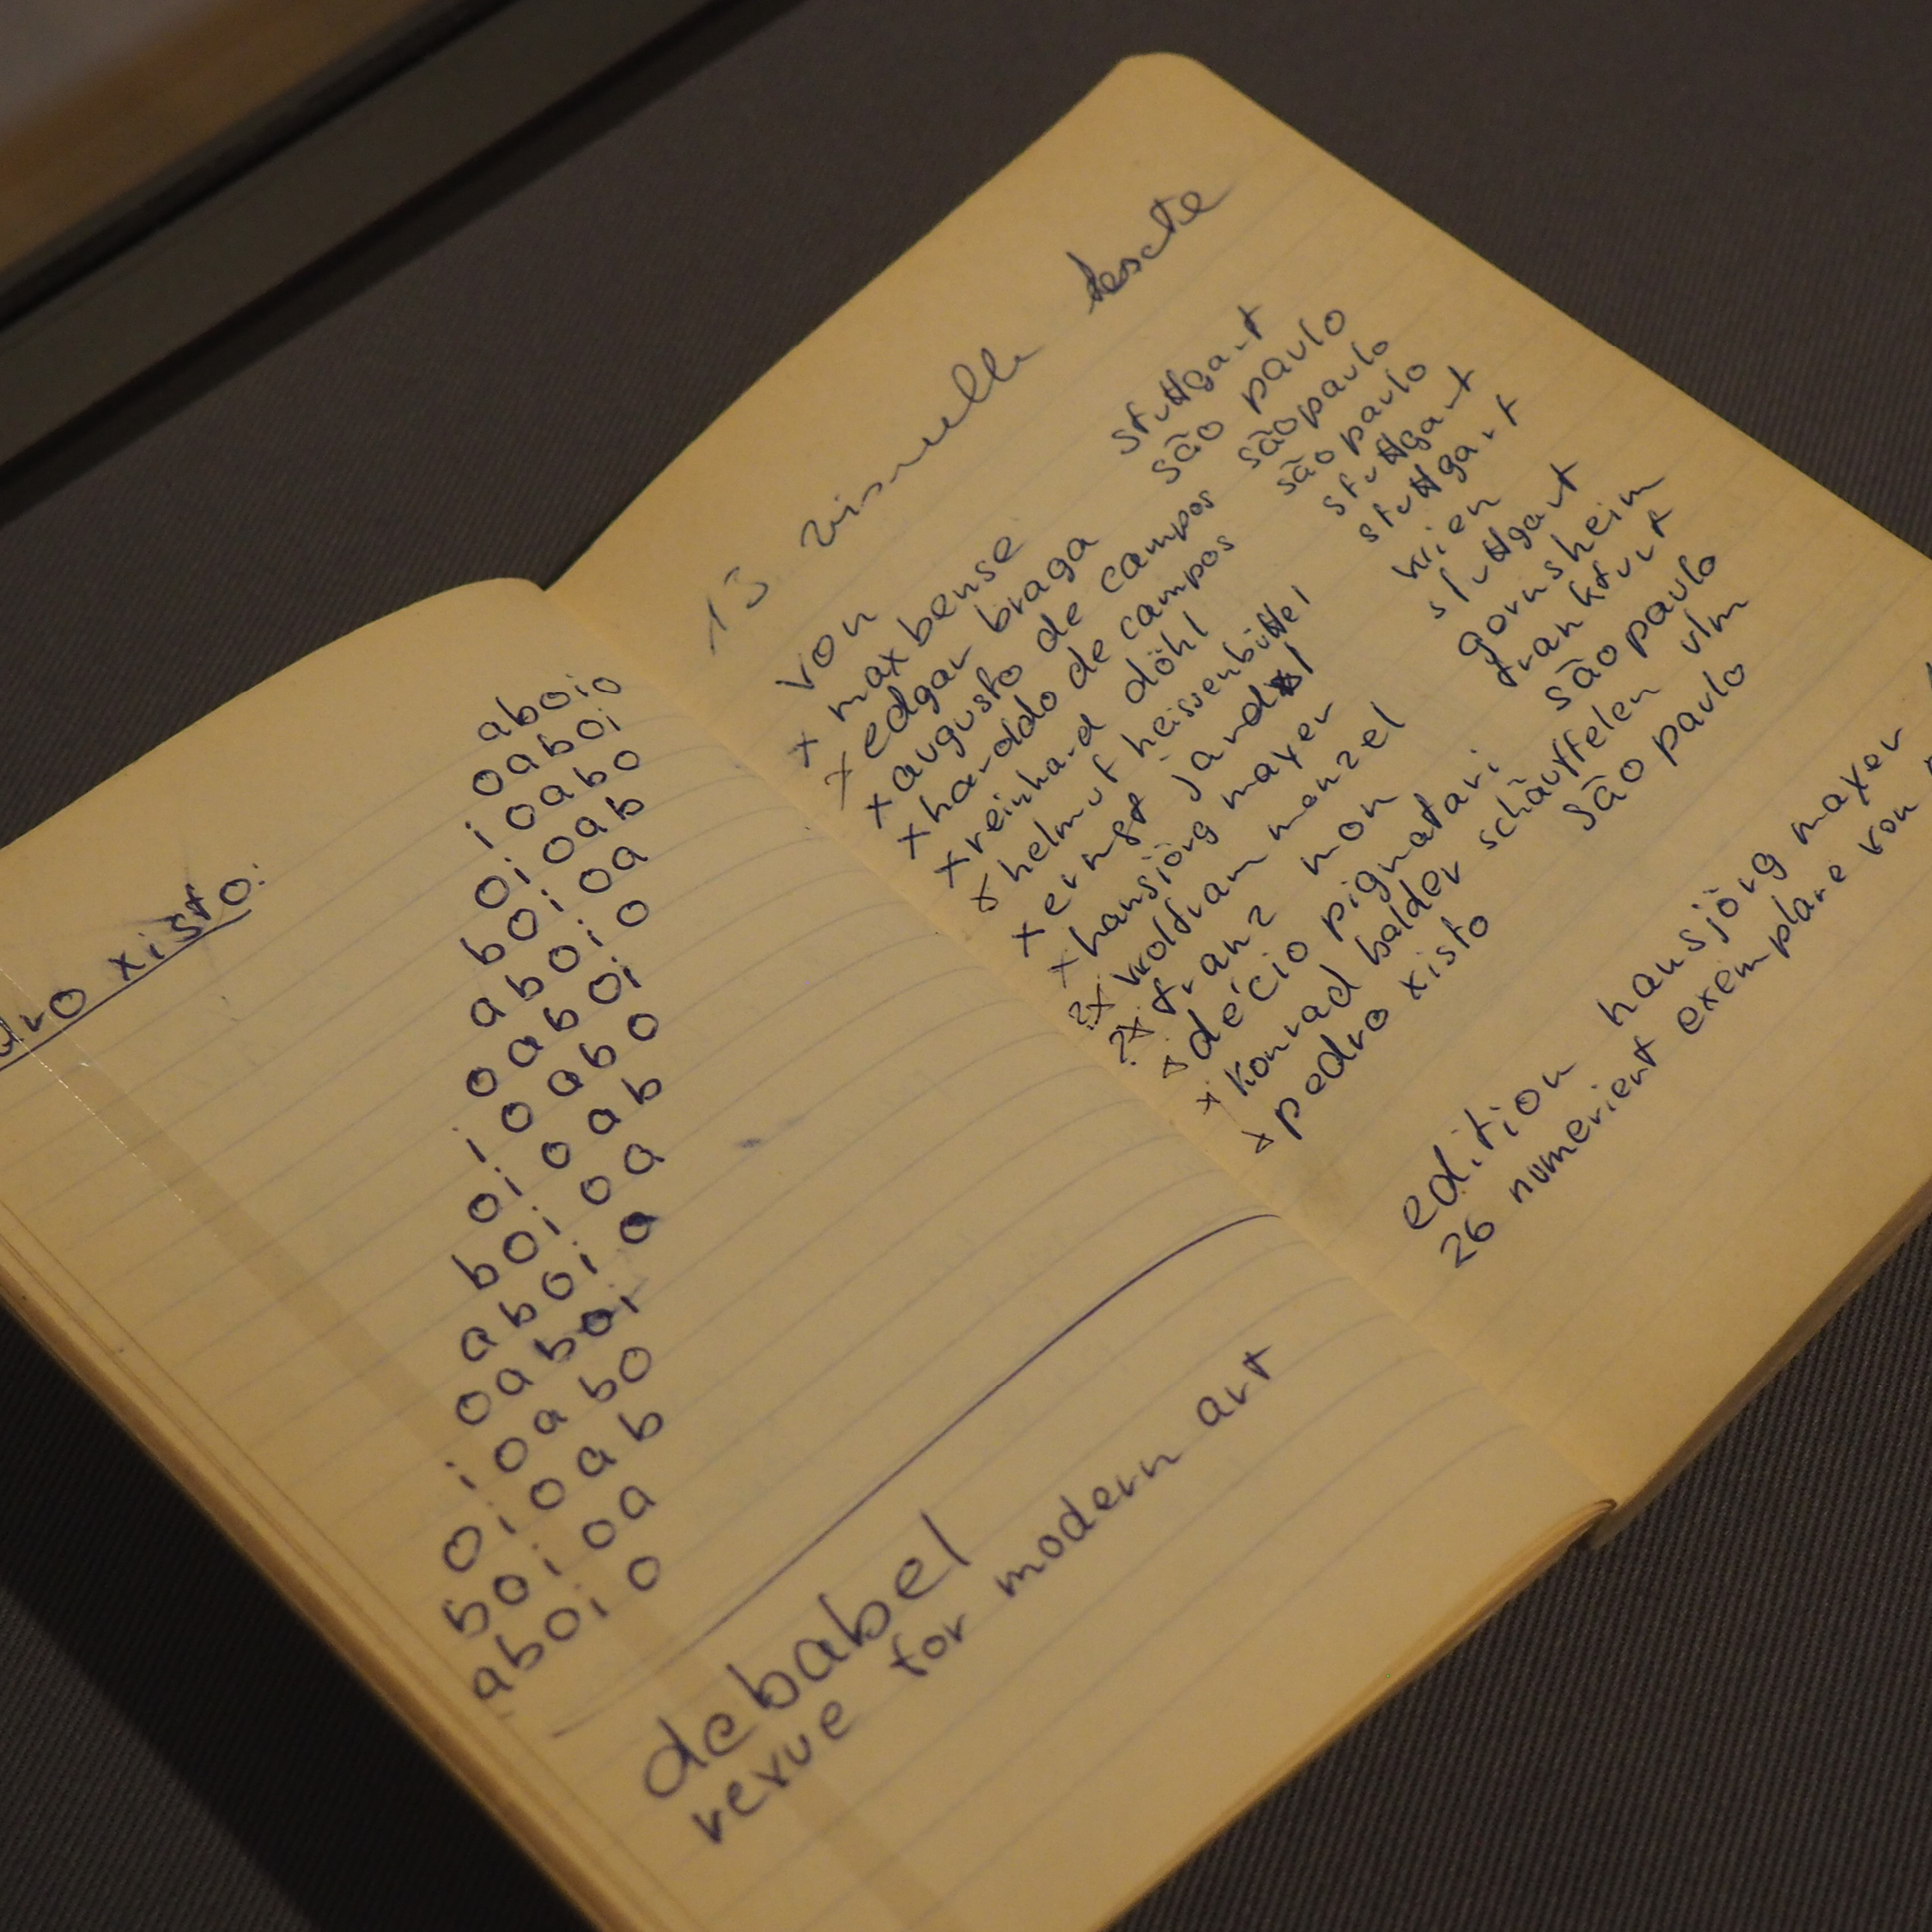 dro xisto:
aboio
oaboi
ioabo
oioab
boioa
aboio
oaboi
ioabo
oioab
boioa
aboio
oaboi
ioabo
oioab
boioa
aboio
debabel
revue for modern art
13 visuelle texte
von
x max bense stuttgart
x edgar braga são paulo
x augusto de campos são paulo
x haroldo de campos são paulo
x reinhard döhl stuttgart
x helmut heissenbüttel stuttgart
x ernst jandl wien
x hansjörg mayer stuttgart
?x wolfram menzel gernsheim
?x franz mon frankfurt
x décio pignatari são paulo
x konrad balder schäuffelen ulm
x pedro xisto são paulo
edition hansjörg mayer
26 numeriert exemplare von